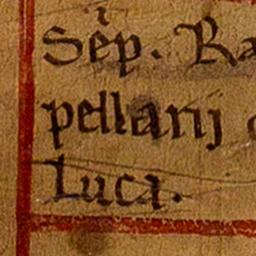 Sep. Ra
pellanj
Luca.